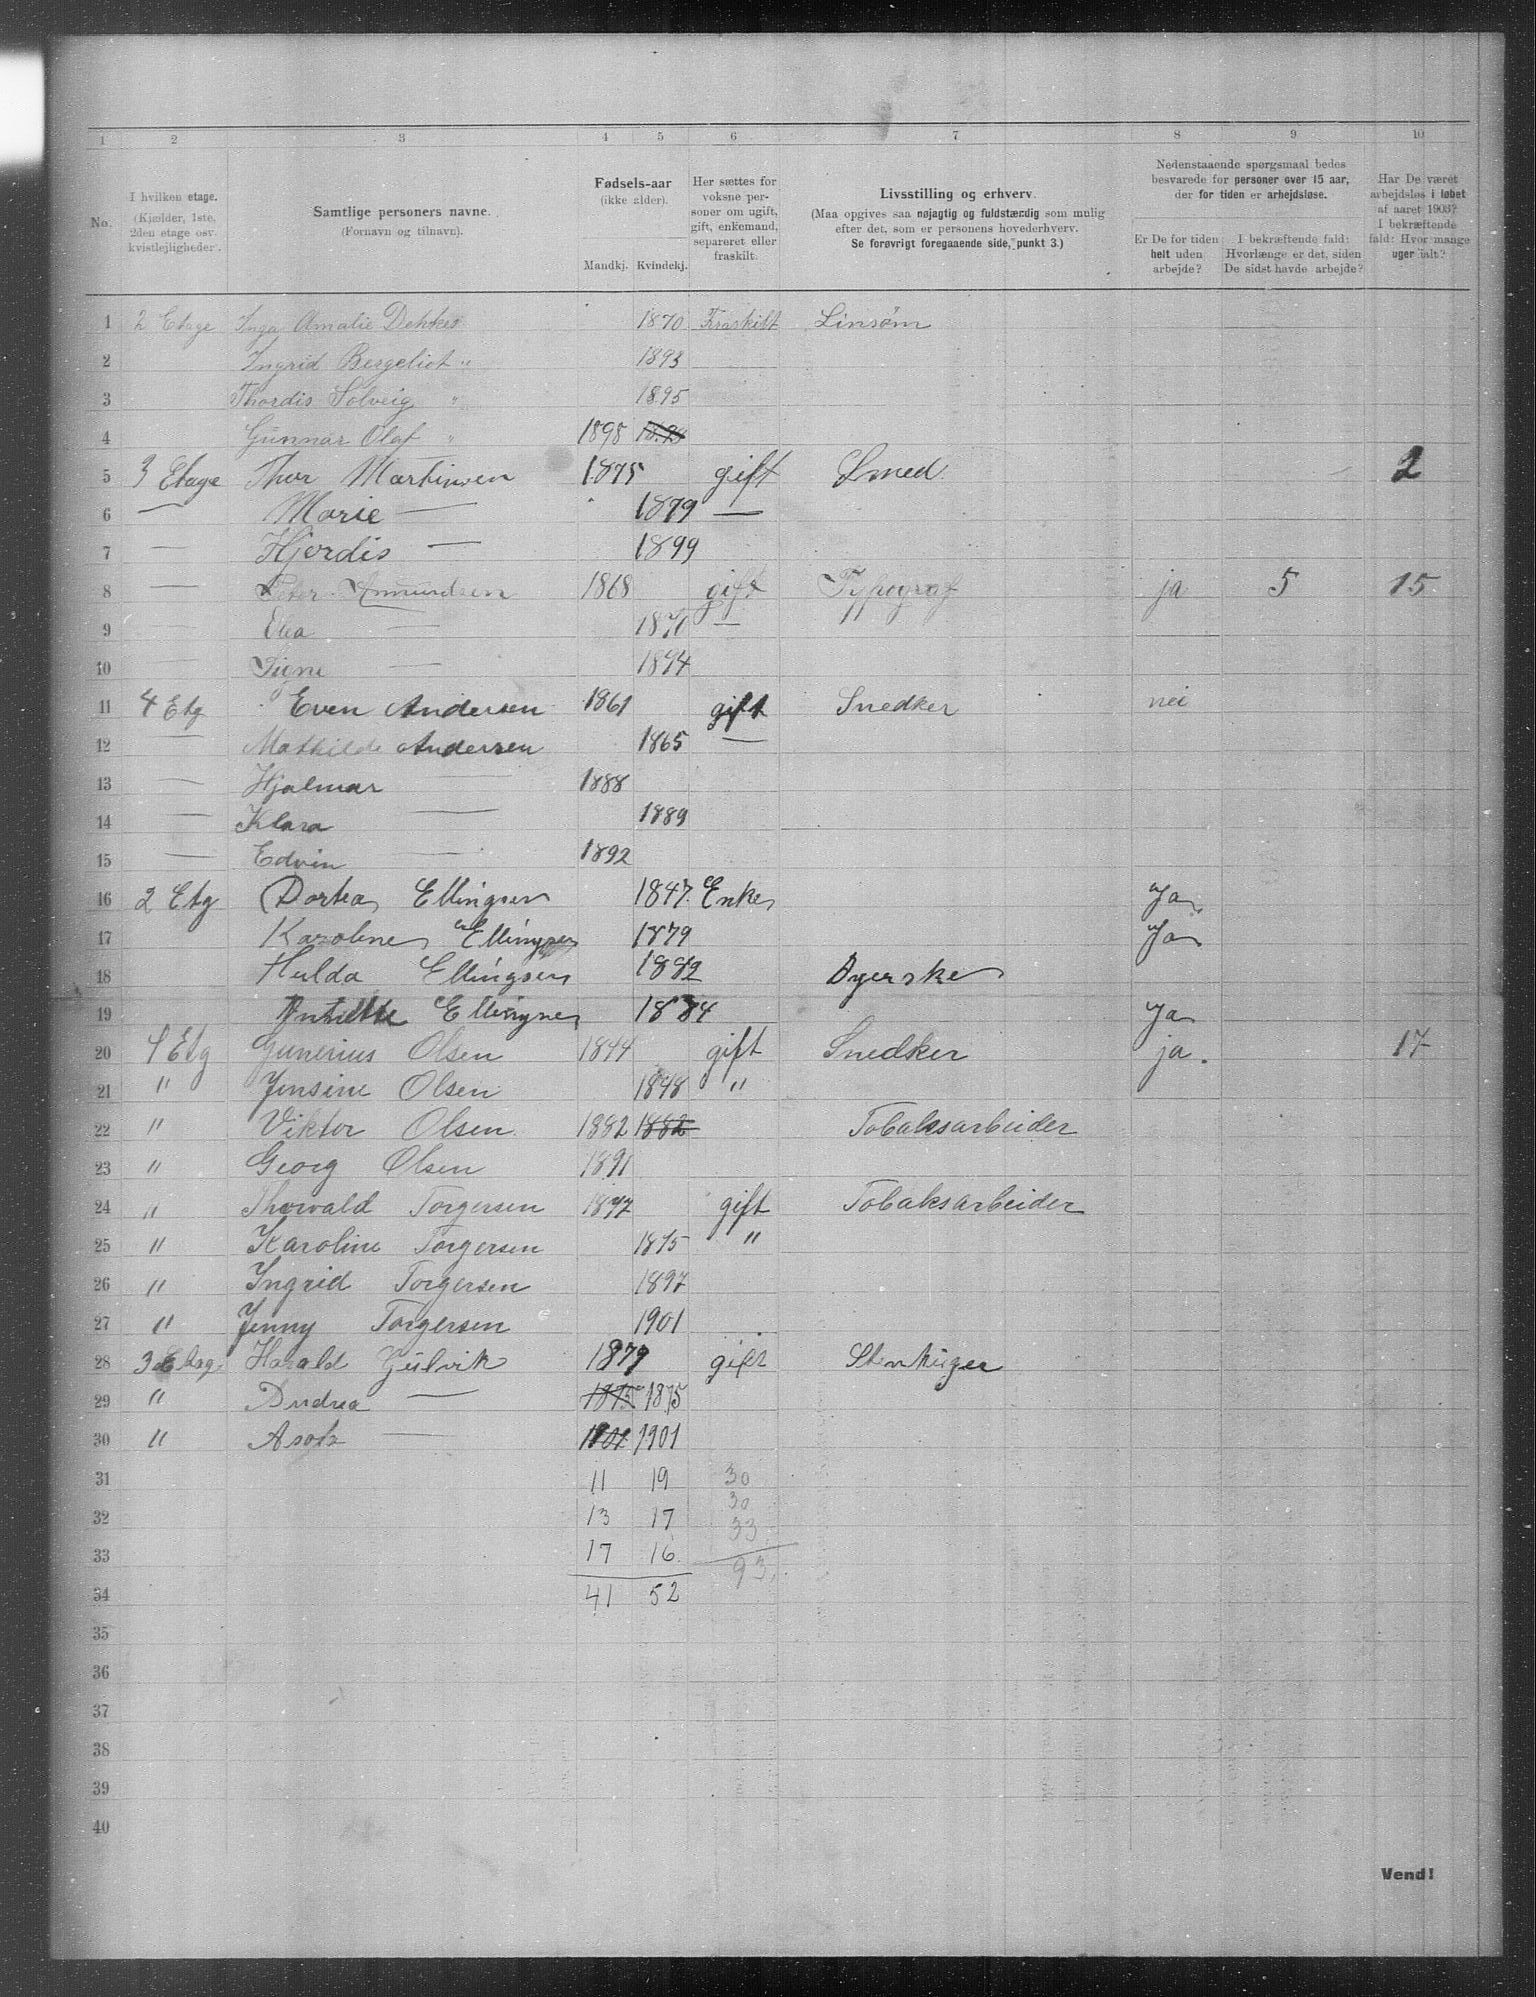 1 2 3 4 5 6 7 8 9 10
No.
I hvilken etage.
(Kjælder, 1ste, 2den etage osv. kvistlejligheder).
Samtlige personers navne.
(Fornavn og tilnavn).
Fødsels-aar
(ikke alder).
Mandkj. Kvindekj.
Her sættes for voksne personer om ugift, gift, enkemand, separeret eller fraskilt.
Livsstilling og erhverv.
(Maa opgives saa nøjagtig og fuldstændig som mulig efter det, som er personens hovederhverv.
Se forøvrigt foregaaende side, punkt 3.)
Nedenstaaende spørgsmaal bedes besvarede for personer over 15 aar, der for tiden er arbejdsløse.
Er De for tiden helt uden arbejde?
I bekræftende fald: Hvorlænge er det, siden De sidst havde arbejde?
Har De været arbejdsløs i løbet af aaret 1903? I bekræftende fald: Hvor mange uger ialt?
1 2 Etage Inga Amalie 1870 Fraskilt Linsøm
2 Ingrid Bergeliot " 1893
3 Thordis Solveig " 1895
4 Gunnar Olaf " 1898
5 3 Etage Thor Martinsen 1875 gift Smed 2
6 — Marie — 1879 —
7 — Hjordis — 1899
8 — Peter Amundsen 1868 gift Typograf ja 5 15
9 — — 1871 —
10 — Signe — 1894
11 4 Etg Even Andersen 1861 gift Snedker nei
12 — Mathilde Andersen 1865 —
13 — Hjalmar — 1888
14 — Klara — 1889
15 — Edvin — 1892
16 2 Etg Dortea Ellingsen 1847 Enke Ja
17 Karoline Ellingsen 1879 Ja
18 Hulda Ellingsen 1882 Syerske
19 Ellingsen 1884 Ja
20 4 Etg Gunerius Olsen 1844 gift Snedker ja. 17
21 " Jensine Olsen 1848 "
22 " Viktor Olsen 1882 1882 Tobaksarbeider
23 " Georg Olsen 1891
24 " Thorvald Torgersen 1872 gift Tobaksarbeider
25 " Karoline Torgersen 1875 "
26 " Ingrid Torgersen 1897
27 " Jenny Torgersen 1901
28 3 Harald Gulvik 1879 gift Stenhuger
29 " Andrea — 1875 1875
30 " — 1901 1901
31 11 19 30
32 13 17 30
33
33 17 16
93
34 41 52
35
36
37
38
39
40
Vend!